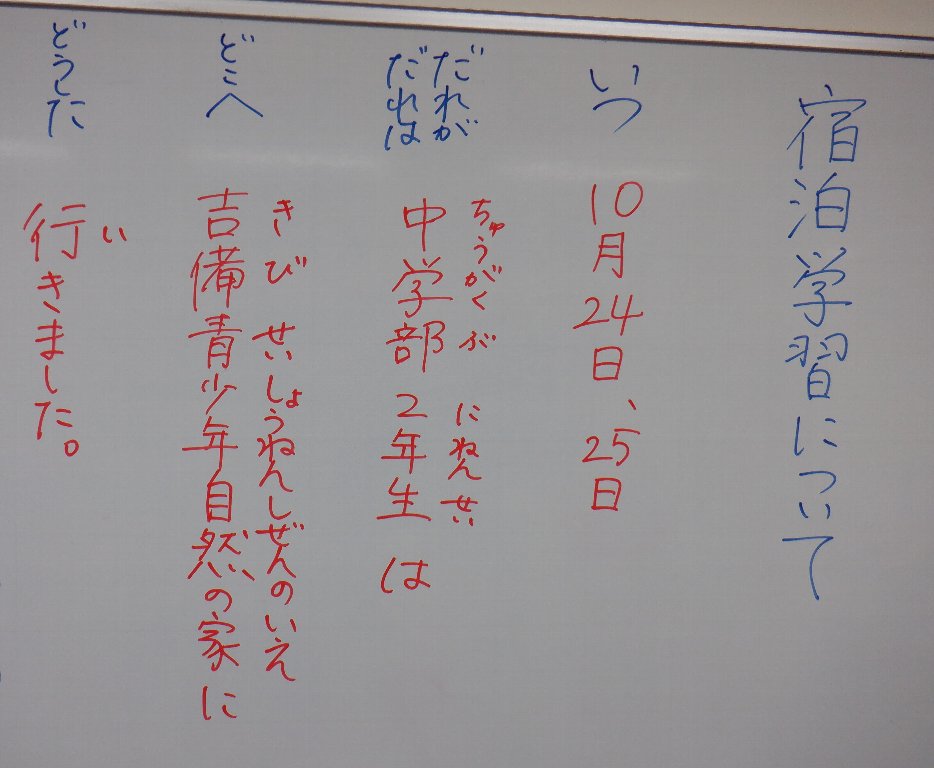 宿泊学習について
いつ
10月24日、25日
だれが
だれは
ちゅうがくぶ にねんせい
中学部2年生は
どこへ
きび せいしょうねんしぜんのいえ
吉備青少年自然の家に
どうした
い
行きました。